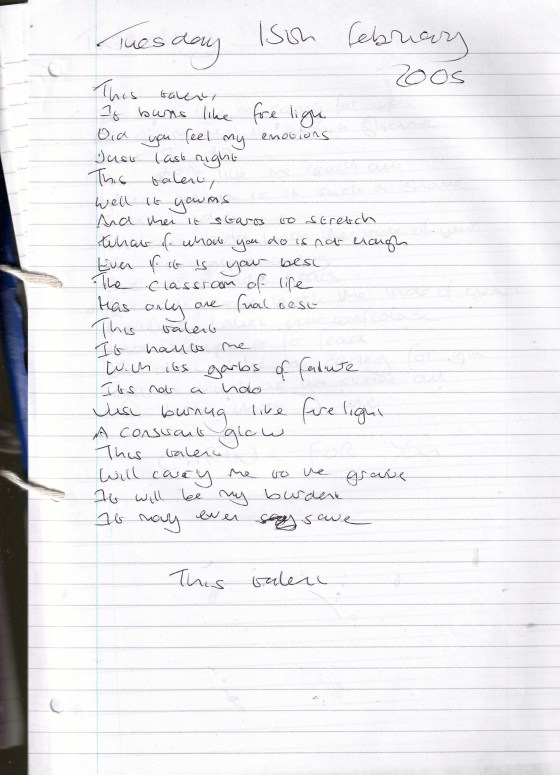 Tuesday 15th February
2005
This talent,
It burns like fire light
Did you feel my emotions
Just last night
This talent,
Well it yawns
And then it starts to stretch
What if what you do is not enough
Even if it is your best
The classroom of life
Has only one final test
This talent
It haunts me
With its garbs of failure
Its not a halo
Just burning like fire light
A constant glow
This talent
Will carry me to the grave
It will be my burden
It may even save
This talent